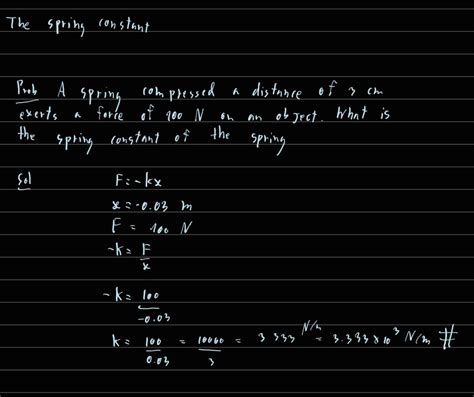 The spring constant
Prob A spring compressed a distance of 3 cm
exerts a force of 100 N on an object. What is
the spring constant of the spring
Sol F = -kx
x = -0.03 m
F = 100 N
-k = F/x
-k = 100/-0.03
k = 100/0.03 = 10000/3 = 3 333 N/m = 3.333 x 10^3 N/m #